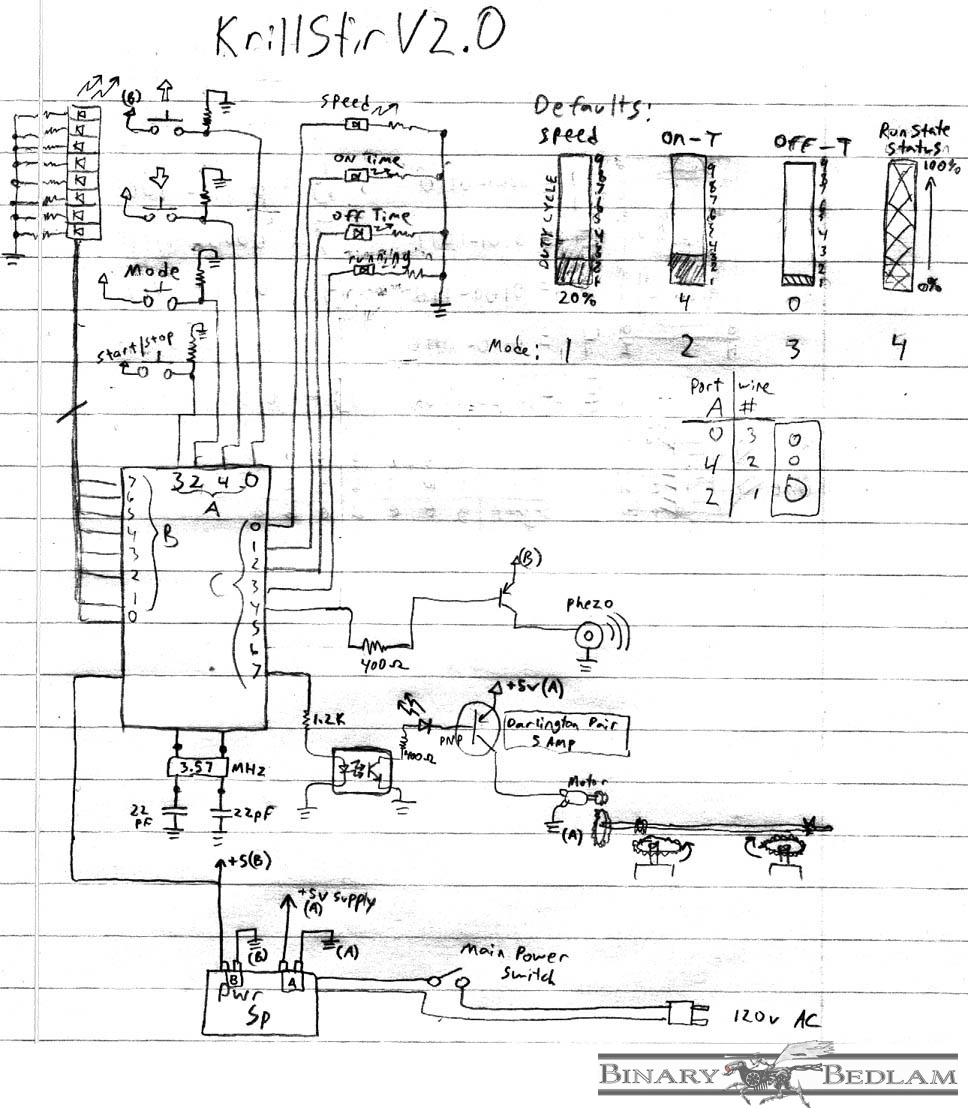 KrillStir V2.0
(B)
Mode
start/stop
speed
on Time
off Time
running
Defaults:
speed
On-T
OFF-T
Run State
Status
DUTY CYCLE
9
8
7
6
5
4
3
2
1
9
8
7
6
5
4
3
2
1
9
8
7
6
5
4
3
2
1
100%
0%
20%
4
0
Mode: 1 2 3 4
Port wire
A #
0 3 0
4 2 0
2 1 0
3 2 4 0
A
7
6
5
4
3
2
1
0
B
0
1
2
3
4
5
6
7
C
400Ω
(B)
phezo
1.2K
400Ω
PNP
+5v(A)
Darlington Pair
5 Amp
Motor
(A)
3.57 MHz
22
pF
22pF
+5(B)
+5v supply
(A)
(B)
(A)
B
A
pwr
Sp
Main Power
Switch
120v AC
BINARY BEDLAM